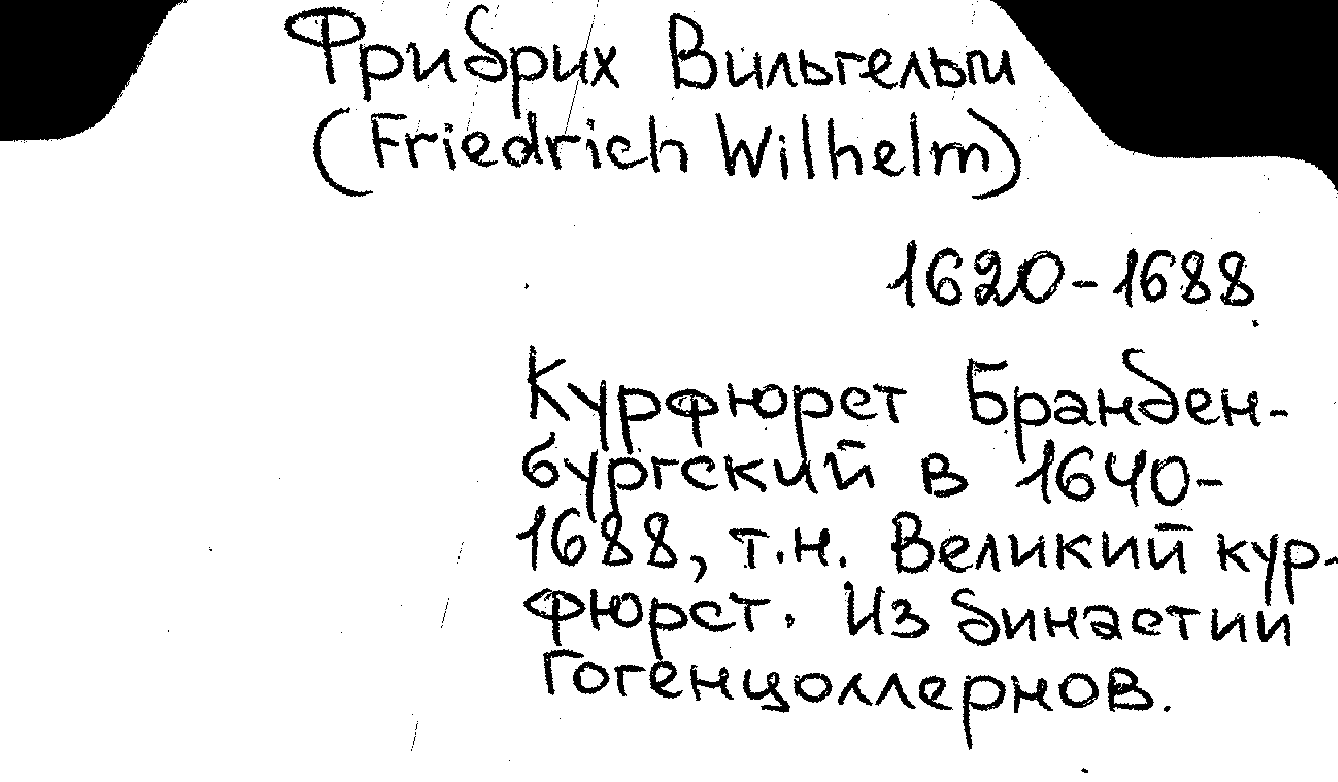 Фридрих Вильгельм
(Friedrich Wilhelm)
1620-1688
Курфюрст Бранден-
бургский в 1640-
1688, т.н. Великий кур-
фюрст. Из династии
Гогенцоллернов.